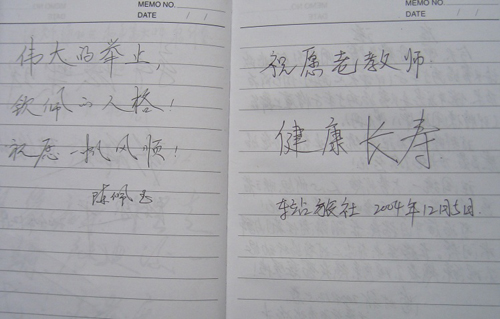 MEMO NO.
DATE / /
伟大的举止,
钦佩的人格!
祝愿一帆风顺!
陈佩
MEMO NO.
DATE / /
祝愿老教师
健康长寿
车站旅社 2004年12月5日